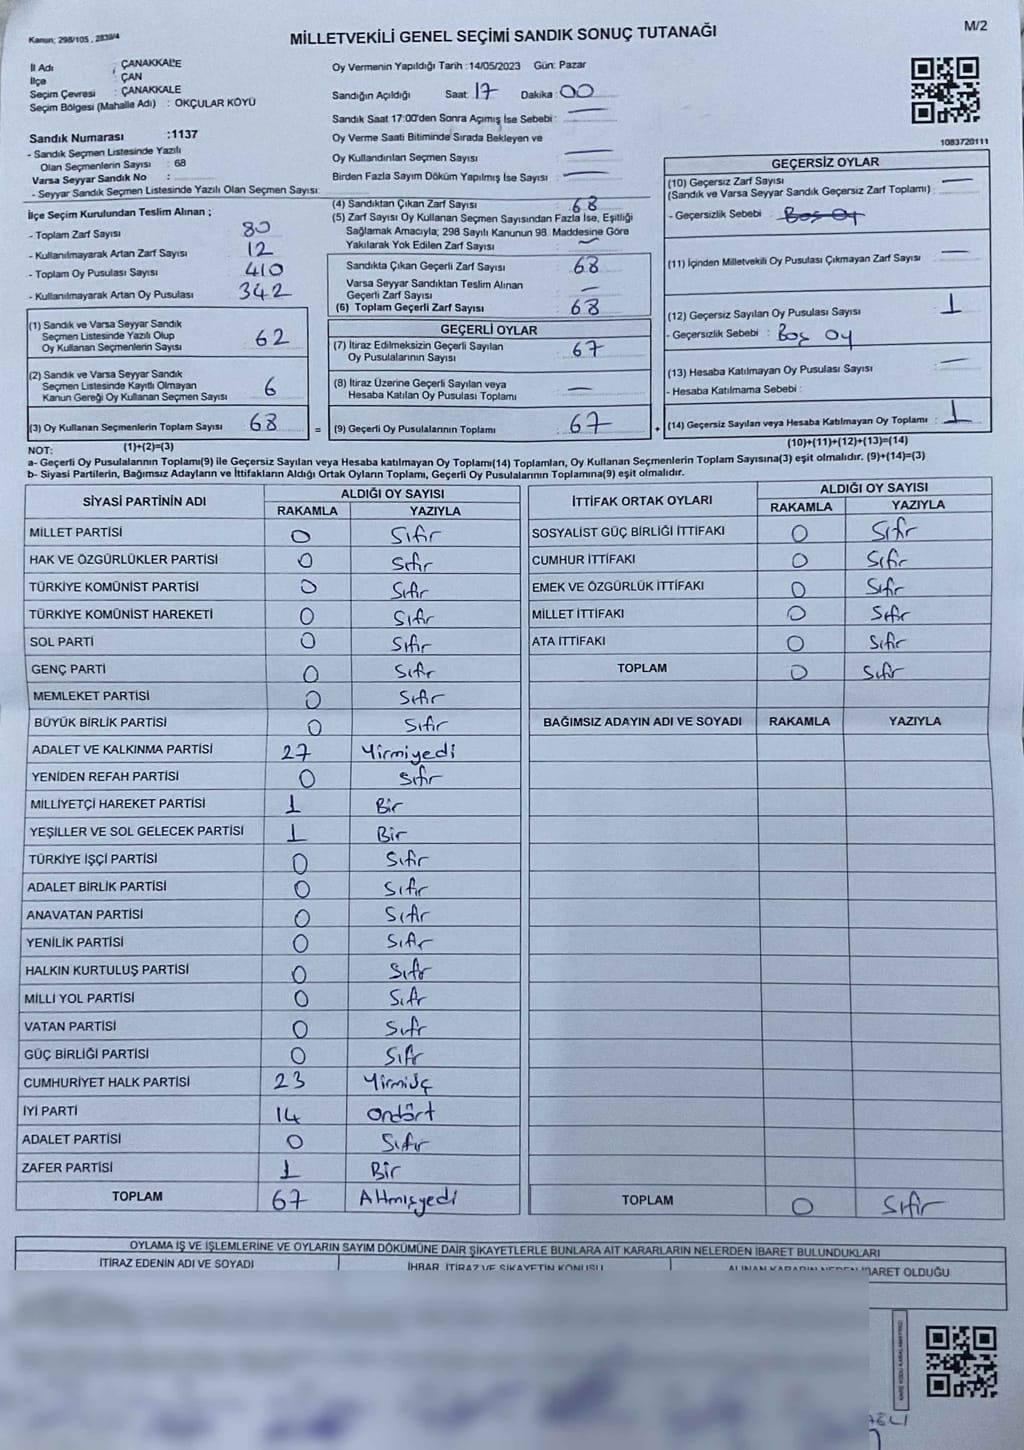 Kanun; 298/105 , 2839/4
MİLLETVEKİLİ GENEL SEÇİMİ SANDIK SONUÇ TUTANAĞI
M/2
İl Adı : ÇANAKKALE
İlçe : ÇAN
Seçim Çevresi : ÇANAKKALE
Seçim Bölgesi (Mahalle Adı) : OKÇULAR KÖYÜ
Sandık Numarası :1137
- Sandık Seçmen Listesinde Yazılı
Olan Seçmenlerin Sayısı : 68
Varsa Seyyar Sandık No :
- Seyyar Sandık Seçmen Listesinde Yazılı Olan Seçmen Sayısı:
İlçe Seçim Kurulundan Teslim Alınan ;
- Toplam Zarf Sayısı 80
- Kullanılmayarak Artan Zarf Sayısı 12
- Toplam Oy Pusulası Sayısı 410
- Kullanılmayarak Artan Oy Pusulası 342
(1) Sandık ve Varsa Seyyar Sandık
Seçmen Listesinde Yazılı Olup
Oy Kullanan Seçmenlerin Sayısı 62
(2) Sandık ve Varsa Seyyar Sandık
Seçmen Listesinde Kayıtlı Olmayan
Kanun Gereği Oy Kullanan Seçmen Sayısı 6
(3) Oy Kullanan Seçmenlerin Toplam Sayısı 68 =
Oy Vermenin Yapıldığı Tarih :14/05/2023 Gün: Pazar
Sandığın Açıldığı Saat: 17 Dakika : 00
Sandık Saat 17:00'den Sonra Açımış İse Sebebi : —
Oy Verme Saati Bitiminde Sırada Bekleyen ve
Oy Kullandırılan Seçmen Sayısı —
Birden Fazla Sayım Döküm Yapılmış İse Sayısı : —
(4) Sandıktan Çıkan Zarf Sayısı 68
(5) Zarf Sayısı Oy Kullanan Seçmen Sayısından Fazla İse, Eşitliği
Sağlamak Amacıyla; 298 Sayılı Kanunun 98. Maddesine Göre
Yakılarak Yok Edilen Zarf Sayısı —
Sandıkta Çıkan Geçerli Zarf Sayısı 68
Varsa Seyyar Sandıktan Teslim Alınan
Geçerli Zarf Sayısı —
(6) Toplam Geçerli Zarf Sayısı 68
GEÇERLİ OYLAR
(7) İtiraz Edilmeksizin Geçerli Sayılan
Oy Pusulalarının Sayısı 67
(8) İtiraz Üzerine Geçerli Sayılan veya
Hesaba Katılan Oy Pusulası Toplamı —
(9) Geçerli Oy Pusulalarının Toplamı 67 +
1083720111
GEÇERSİZ OYLAR
(10) Geçersiz Zarf Sayısı —
(Sandık ve Varsa Seyyar Sandık Geçersiz Zarf Toplamı) :
- Geçersizlik Sebebi : Boş Oy
(11) İçinden Milletvekili Oy Pusulası Çıkmayan Zarf Sayısı —
(12) Geçersiz Sayılan Oy Pusulası Sayısı 1
- Geçersizlik Sebebi : Boş Oy
(13) Hesaba Katılmayan Oy Pusulası Sayısı —
- Hesaba Katılmama Sebebi :
(14) Geçersiz Sayılan veya Hesaba Katılmayan Oy Toplamı : 1
NOT: (1)+(2)=(3)
(10)+(11)+(12)+(13)=(14)
a- Geçerli Oy Pusulalarının Toplamı(9) ile Geçersiz Sayılan veya Hesaba katılmayan Oy Toplamı(14) Toplamları, Oy Kullanan Seçmenlerin Toplam Sayısına(3) eşit olmalıdır. (9)+(14)=(3)
b- Siyasi Partilerin, Bağımsız Adayların ve İttifakların Aldığı Ortak Oyların Toplamı, Geçerli Oy Pusulalarının Toplamına(9) eşit olmalıdır.
SİYASİ PARTİNİN ADI ALDIĞI OY SAYISI
RAKAMLA YAZIYLA
MİLLET PARTİSİ 0 Sıfır
HAK VE ÖZGÜRLÜKLER PARTİSİ 0 Sıfır
TÜRKİYE KOMÜNİST PARTİSİ 0 Sıfır
TÜRKİYE KOMÜNİST HAREKETİ 0 Sıfır
SOL PARTİ 0 Sıfır
GENÇ PARTİ 0 Sıfır
MEMLEKET PARTİSİ 0 Sıfır
BÜYÜK BİRLİK PARTİSİ 0 Sıfır
ADALET VE KALKINMA PARTİSİ 27 Yirmiyedi
YENİDEN REFAH PARTİSİ 0 Sıfır
MİLLİYETÇİ HAREKET PARTİSİ 1 Bir
YEŞİLLER VE SOL GELECEK PARTİSİ 1 Bir
TÜRKİYE İŞÇİ PARTİSİ 0 Sıfır
ADALET BİRLİK PARTİSİ 0 Sıfır
ANAVATAN PARTİSİ 0 Sıfır
YENİLİK PARTİSİ 0 Sıfır
HALKIN KURTULUŞ PARTİSİ 0 Sıfır
MİLLİ YOL PARTİSİ 0 Sıfır
VATAN PARTİSİ 0 Sıfır
GÜÇ BİRLİĞİ PARTİSİ 0 Sıfır
CUMHURİYET HALK PARTİSİ 23 Yirmiüç
İYİ PARTİ 14 Ondört
ADALET PARTİSİ 0 Sıfır
ZAFER PARTİSİ 1 Bir
TOPLAM 67 Altmışyedi
İTTİFAK ORTAK OYLARI ALDIĞI OY SAYISI
RAKAMLA YAZIYLA
SOSYALİST GÜÇ BİRLİĞİ İTTİFAKI 0 Sıfır
CUMHUR İTTİFAKI 0 Sıfır
EMEK VE ÖZGÜRLÜK İTTİFAKI 0 Sıfır
MİLLET İTTİFAKI 0 Sıfır
ATA İTTİFAKI 0 Sıfır
TOPLAM 0 Sıfır
BAĞIMSIZ ADAYIN ADI VE SOYADI RAKAMLA YAZIYLA
TOPLAM 0 Sıfır
OYLAMA İŞ VE İŞLEMLERİNE VE OYLARIN SAYIM DÖKÜMÜNE DAİR ŞİKAYETLERLE BUNLARA AİT KARARLARIN NELERDEN İBARET BULUNDUKLARI
İTİRAZ EDENİN ADI VE SOYADI
İHBAR, İTİRAZ VE ŞİKAYETİN KONUSU
ALINAN KARARIN NEDEN İBARET OLDUĞU